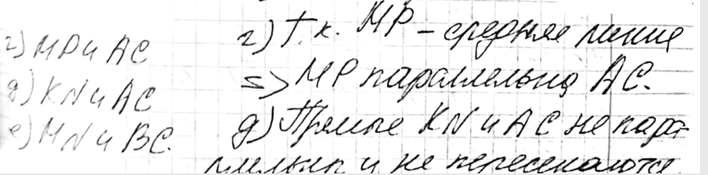 г) MP и AC
д) KN и AC
е) MN и BC.
г) Т.к. MP – средняя линия
=> MP параллельна AC.
д) Прямые KN и AC не парал
лельны и не пересекаются